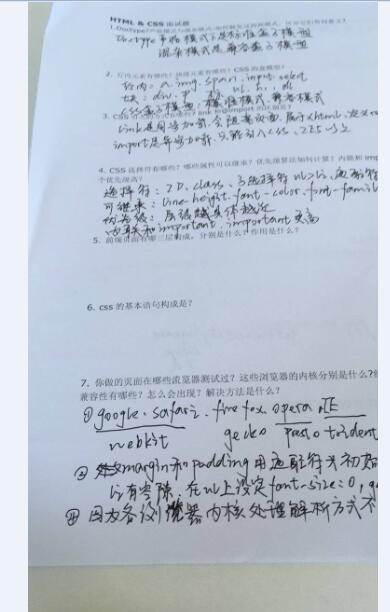 HTML & CSS 面试题
1.Doctype?严格模式与混杂模式-如何触发这两种模式，区分它们有何意义?
Doctype 严格模式是标准盒子模型
混杂模式是兼容盒子模型
2. 行内元素有哪些? 块级元素有哪些? CSS 的盒模型?
行内: a. img. span. input. select
块: div. p. ul. li. dl
CSS盒子模型: 标准模式 兼容模式
3. CSS 引入的方式有哪些? link
link是同步加载, 会
import是异步加载, 只能引入CSS, IE5以上
4. CSS 选择符有哪些? 哪些属性可以继承? 优先级算法如何计算? 内联和 imp
个优先级高?
选择符: ID. class. 子选择符 ul>li. 通配符
可继承: line-height. font-color. font-famil
优先级: 层级越具体越近
内联和important, important 更高
5. 前端页面有哪三层构成，分别是什么? 作用是什么?
6. css 的基本语句构成是?
7. 你做的页面在哪些流览器测试过? 这些浏览器的内核分别是什么?
兼容性有哪些? 怎么会出现? 解决方法是什么?
① google. safari. firefox. opera. IE
webkit gecko presto trident
② margin和padding用通配符来初始
li有空隙. 在ul上设定font-size:0,
因为各浏览器内核处理解析方式不